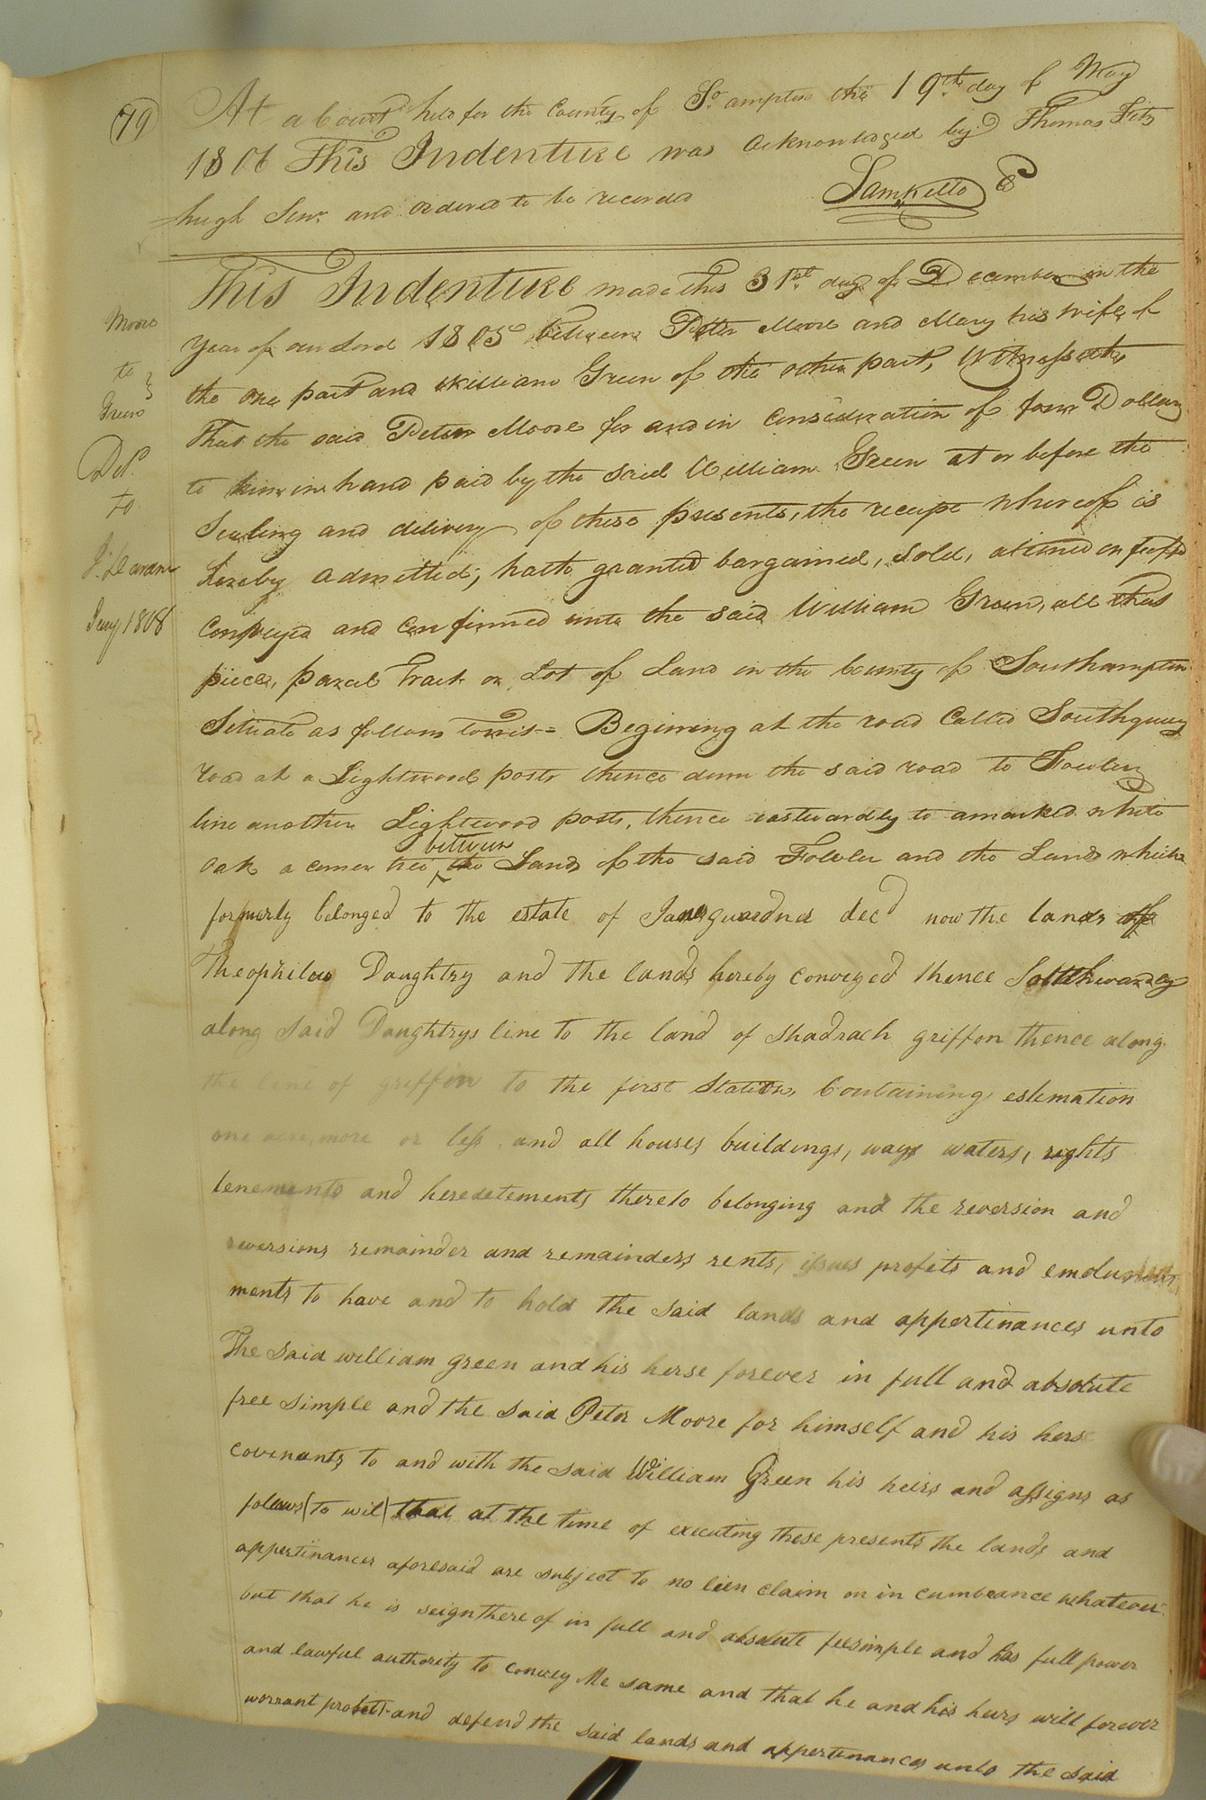 79
At a Court held for the County of So.ampton the 19th day of May
1806 This Indenture was acknowledged by Thomas Fitz
hugh Senr. and ordered to be recorded
Saml Kello C
Moore
to
Green
Del.
to
Jany 1808
This Indenture made this 31st. day of December in the
Year of our Lord 1805 between Peter Moore and Mary his wife of
the one part and William Green of the other part, Witnesseth,
That the said Peter Moore for and in Consideration of four Dollars
to him in hand paid by the said William Green at or before the
Sealing and delivery of these presents, the receipt whereof is
hereby admitted; hath granted bargained, sold, aliened enfeoffd
Conveyed and Confirmed unto the said William Green, all that
piece, parcel Tract or Lot of Land in the County of Southampton
Situate as follows towit = Begining at the road Called Southquay
road at a Lightwood post thence down the said road to Fowlers
line another Lightwood post, thence eastwardly to a marked white
between
oak a corner tree the Lands of the said Fowler and the Lands which
formerly belonged to the estate of James guardner decd now the lands of
Theophilus Daughtry and the lands hereby conveyed thence Southwardly
along said Daughtrys line to the land of Shadrach griffon thence along
the line of griffon to the first Station, Containing estemation
one acre, more or less and all houses, buildings, ways waters, rights
tenements and heredetements thereto belonging and the reversion and
reversions remainder and remainders rents, issues profits and emolu
ments to have and to hold the said lands and appertinances unto
The said william green and his herse forever in full and absolute
free simple and the said Peter Moore for himself and his hers
covenants to and with the said William Green his heirs and assigns as
follows (to wit) that at the time of executing these presents the lands and
appertinances aforesaid are subject to no lien claim or in cumbrance whatever
but that he is seign thereof in full and absolute feesimple and has full power
and lawful authority to convey the same and that he and his heirs will forever
warrant protect and defend the said lands and appertinances unto the said